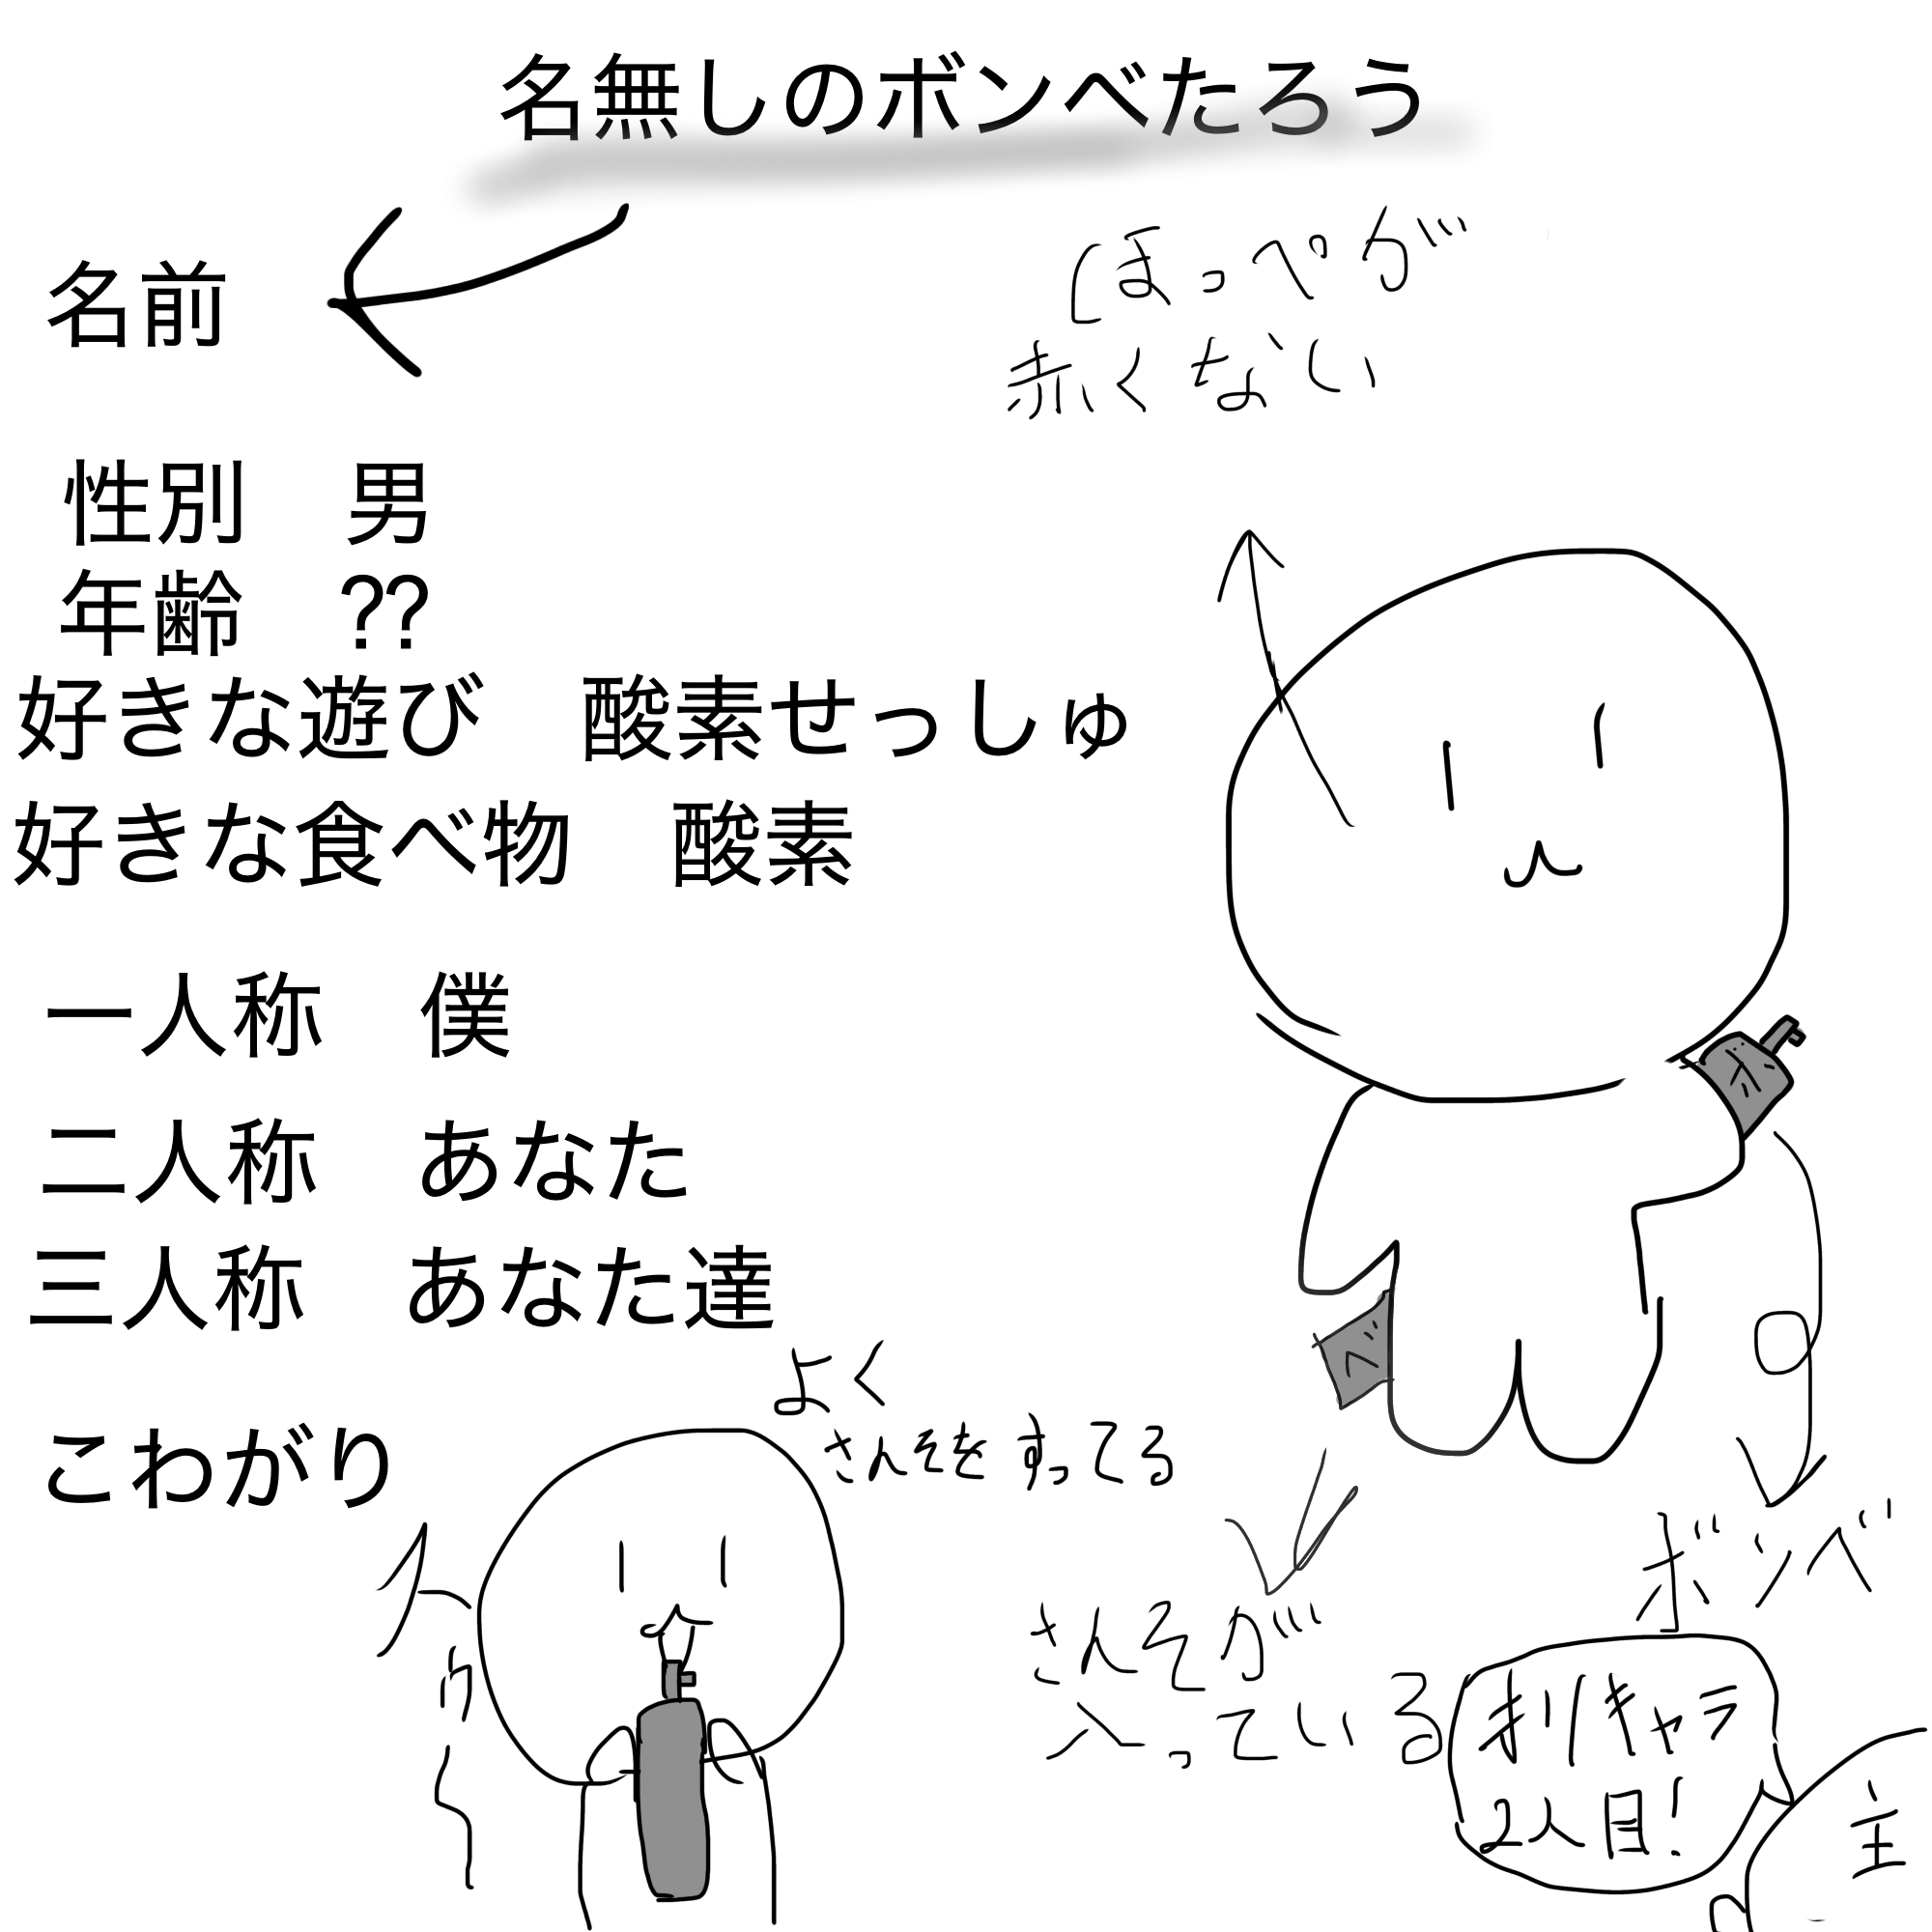 名無しのボンべたろう
名前
ほっぺが
赤くない
性別　男
年齢　??
好きな遊び　酸素せっしゅ
好きな食べ物　酸素
一人称　僕
二人称　あなた
三人称　あなた達
こわがり
よく
さんそをすってる
スーゥ〜
さんそが
入っている
ボンベ
オリキャラ
2人目!
主